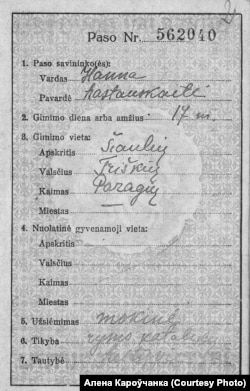 Paso Nr. 562040
1. Paso savininko(ės):
Vardas Hanna
Pavardė
2. Gimimo diena arba amžius: 17 m.
3. Gimimo vieta:
Apskritis Šiaulių
Valsčius Triškių
Kaimas Paragių
Miestas —
4. Nuolatinė gyvenamoji vieta:
Apskritis
Valsčius
Kaimas
Miestas
5. Užsiėmimas mokinė
6. Tikyba rymo katalikų
7. Tautybė
Алена Кароўчанка (Courtesy Photo)